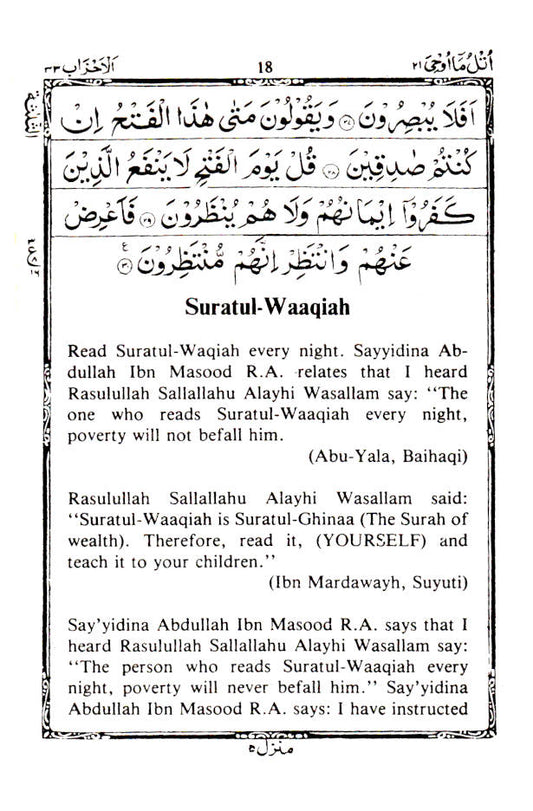 اَلْاَحْزَاب ٣٣
18
اُتْلُ مَآ اُوْحِیَ ٢١
اَفَلَا يُبْصِرُوْنَ ﴿٢٧﴾ وَيَقُوْلُوْنَ مَتٰى هٰذَا الْفَتْحُ اِنْ
كُنْتُمْ صٰدِقِيْنَ ﴿٢٨﴾ قُلْ يَوْمَ الْفَتْحِ لَا يَنْفَعُ الَّذِيْنَ
كَفَرُوْٓا اِيْمَانُهُمْ وَلَا هُمْ يُنْظَرُوْنَ ﴿٢٩﴾ فَاَعْرِضْ
عَنْهُمْ وَانْتَظِرْ اِنَّهُمْ مُّنْتَظِرُوْنَ ﴿٣٠﴾
Suratul-Waaqiah
Read Suratul-Waqiah every night. Sayyidina Ab-
dullah Ibn Masood R.A. relates that I heard
Rasulullah Sallallahu Alayhi Wasallam say: ‘‘The
one who reads Suratul-Waaqiah every night,
poverty will not befall him.
(Abu-Yala, Baihaqi)
Rasulullah Sallallahu Alayhi Wasallam said:
‘‘Suratul-Waaqiah is Suratul-Ghinaa (The Surah of
wealth). Therefore, read it, (YOURSELF) and
teach it to your children.’’
(Ibn Mardawayh, Suyuti)
Say’yidina Abdullah Ibn Masood R.A. says that I
heard Rasulullah Sallallahu Alayhi Wasallam say:
‘‘The person who reads Suratul-Waaqiah every
night, poverty will never befall him.’’ Say’yidina
Abdullah Ibn Masood R.A. says: I have instructed
منزل ٥